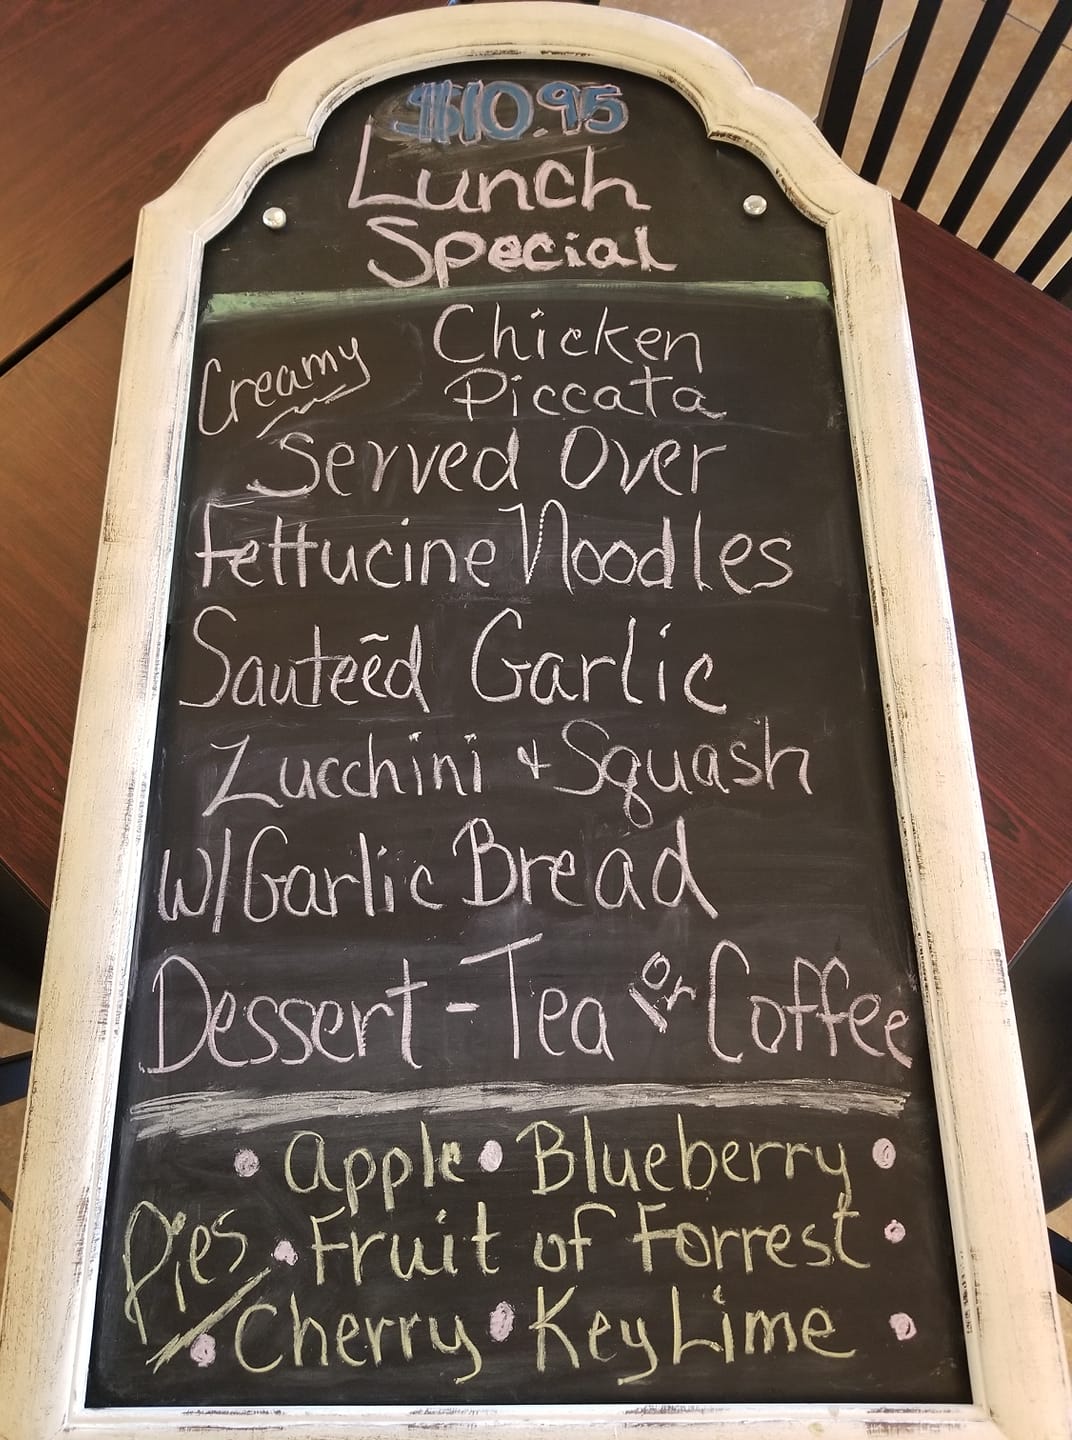 $10.95
Lunch
Special
Creamy Chicken
Piccata
Served Over
Fettucine Noodles
Sauteēd Garlic
Zucchini + Squash
W/Garlic Bread
Dessert - Tea or Coffee
• Apple • Blueberry •
Pies • Fruit of Forrest •
• Cherry • Key Lime •